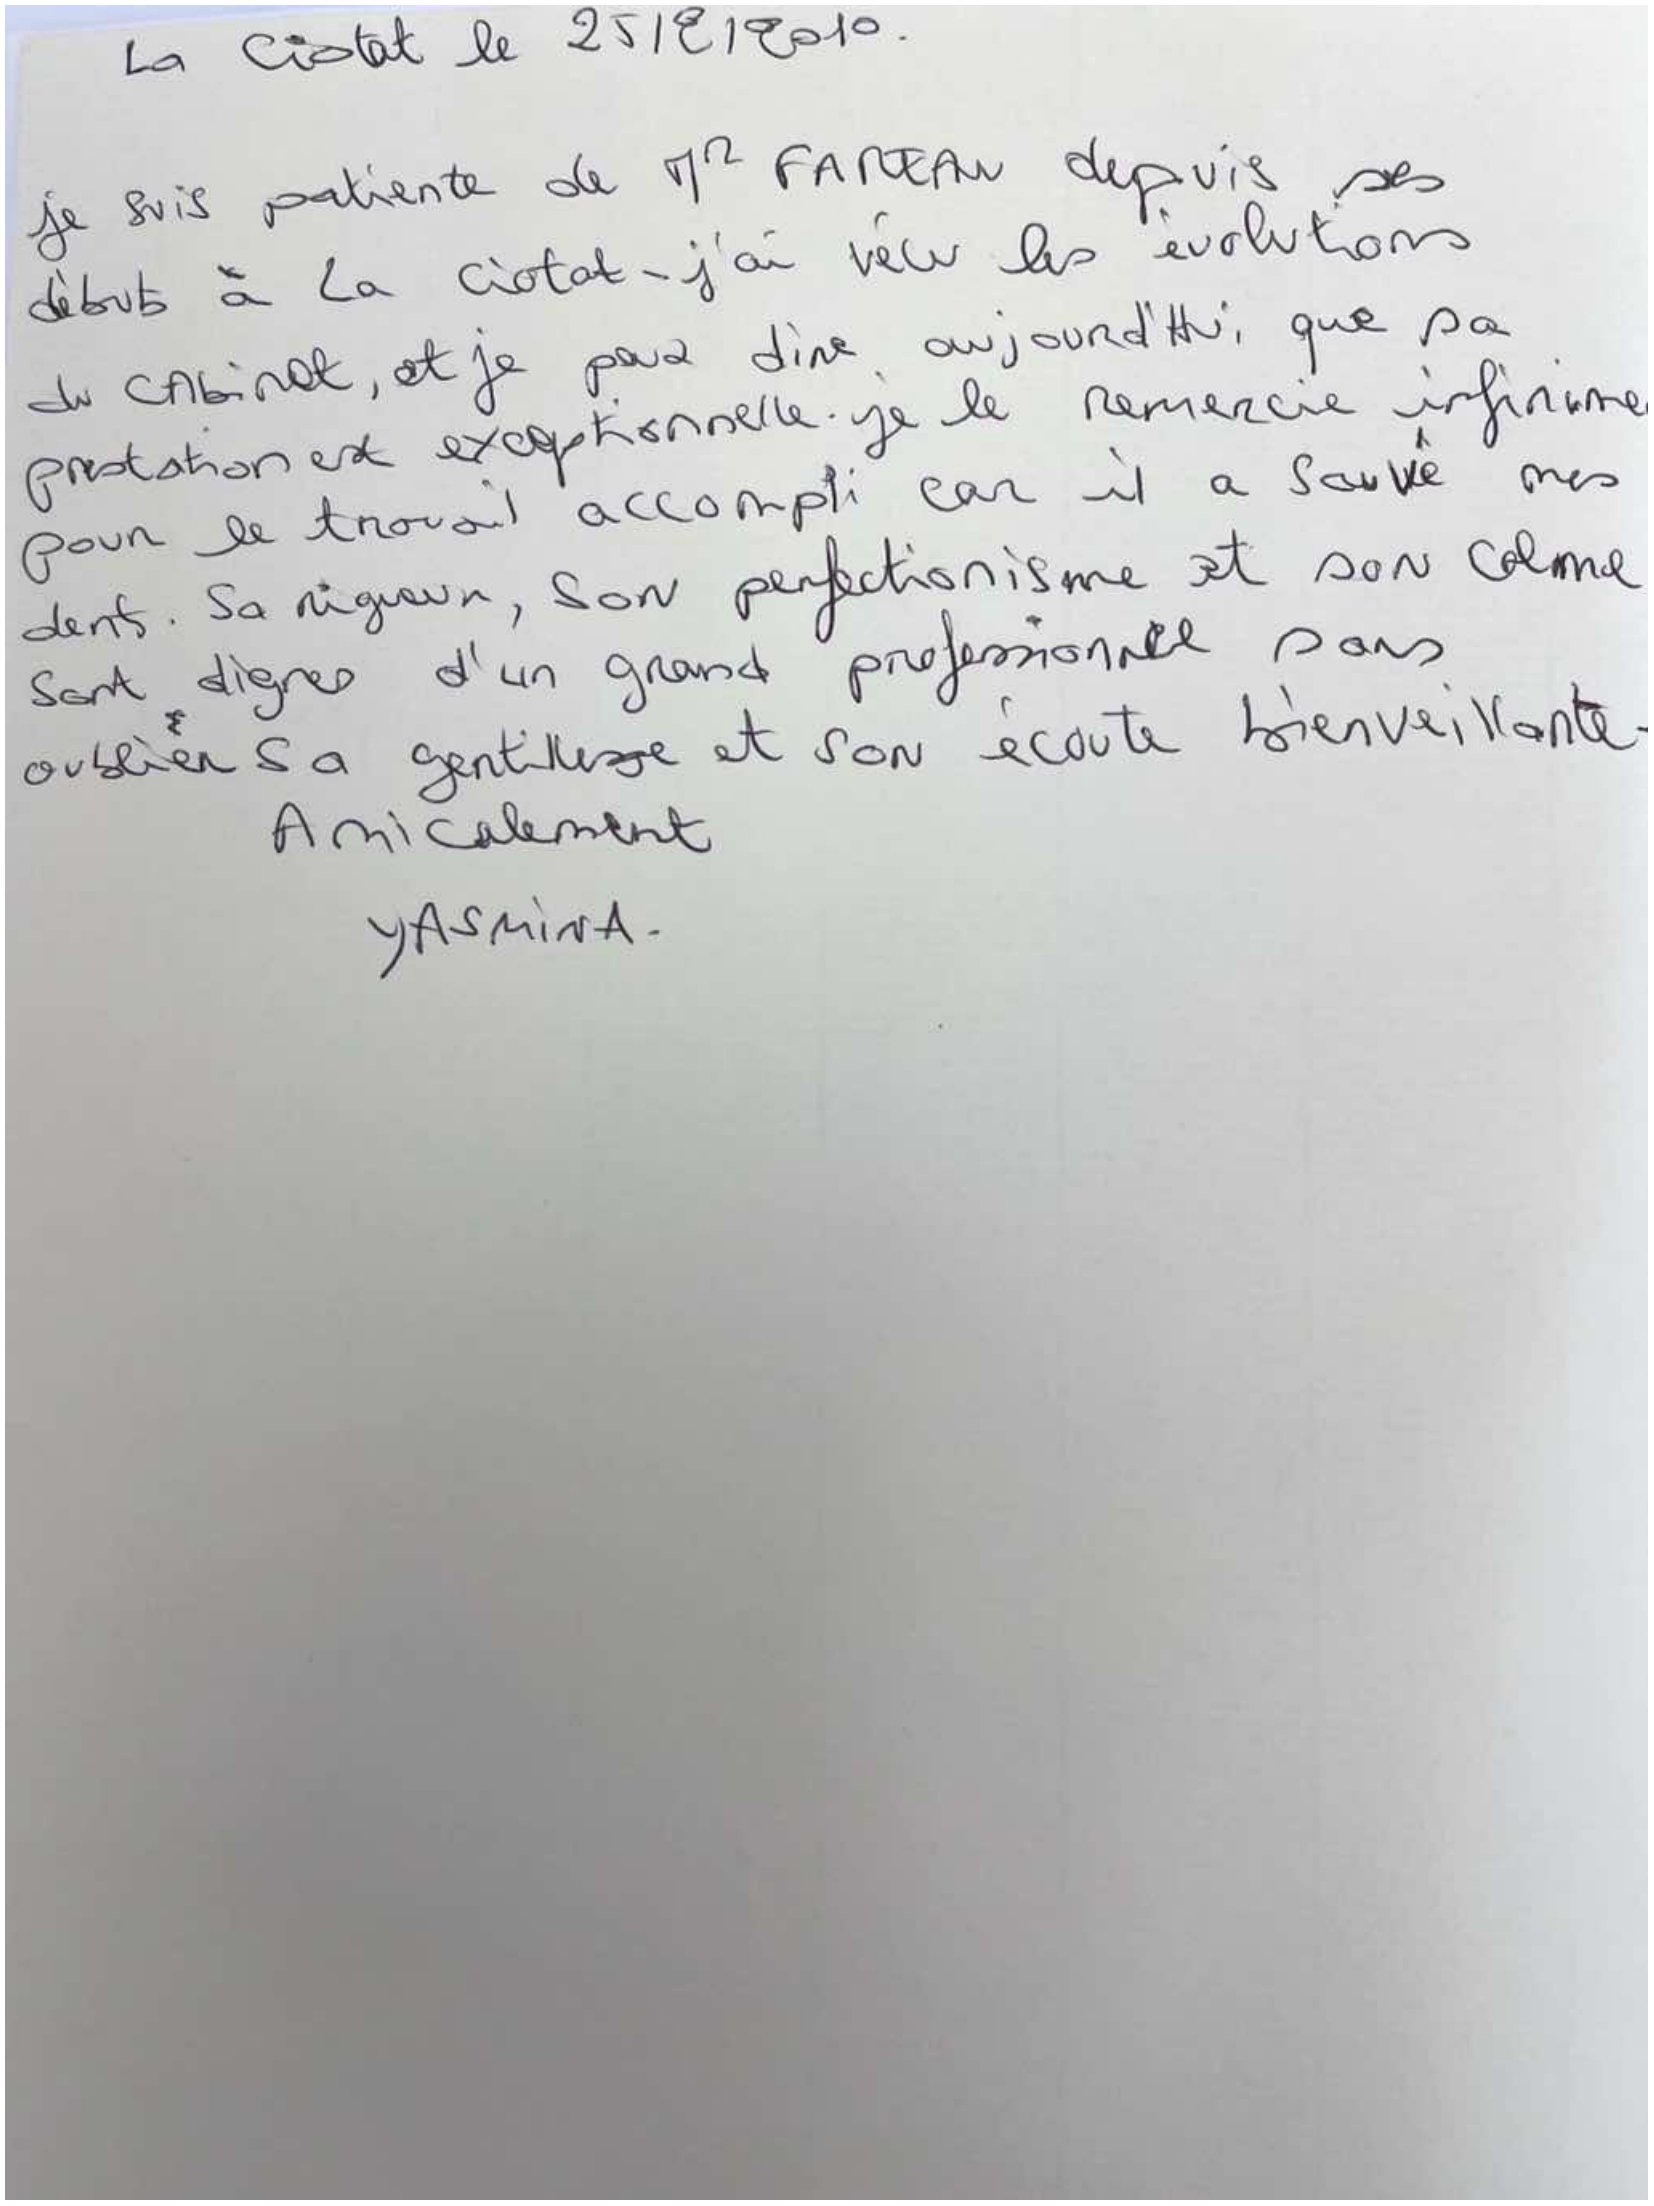 La Ciotat le 25/2/2010.
je suis patiente de Mr depuis ses
débuts à La Ciotat - j'ai vécu les évolutions
du CAbinet, et je peux dire aujourd'Hui que sa
prestation est exceptionnelle. je le remercie infinime
pour le travail accompli car il a sauvé mes
dents. Sa rigueur, son perfectionisme et son calme
sont dignes d'un grand professionnel sans
oublier sa gentillesse et son écoute bienveillante.
Amicalement
YASMINA.